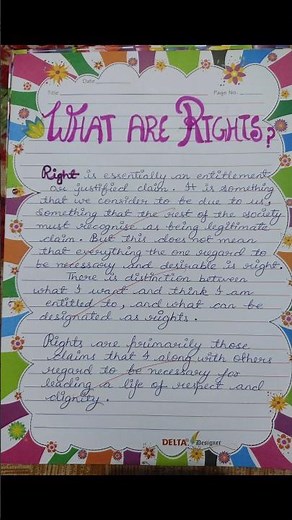 Date
Title
Page No.
WHAT ARE RIGHTS?
Right is essentially an entitlement
or justified claim. It is something
that we consider to be due to us,
Something that the rest of the society
must recognise as being legitimate
claim. But this does not mean
that everything the one regard to
be necessary and desirable is right.
There is distinction between
what I want and think I am
entitled to, and what can be
designated as rights.
Rights are primarily those
claims that I along with others
regard to be necessary for
leading a life of respect and
dignity.
DELTA Designer